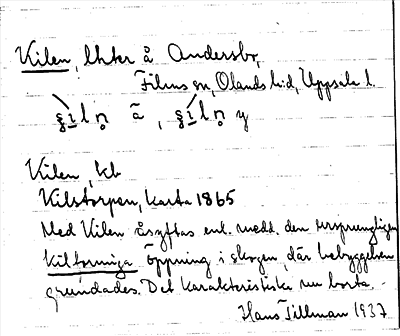 Kilen, lhter å Andersbo,
Films sn, Olands hd, Uppsala l.
å, y
Kilen, kb
Kilstorpen, karta 1865
Med Kilen åsyftas enl. medd. den ursprungligen
kilformiga öppning i skogen, där bebyggelsen
grundades. Det karakteristiska nu borta.
Hans Tillman 1937